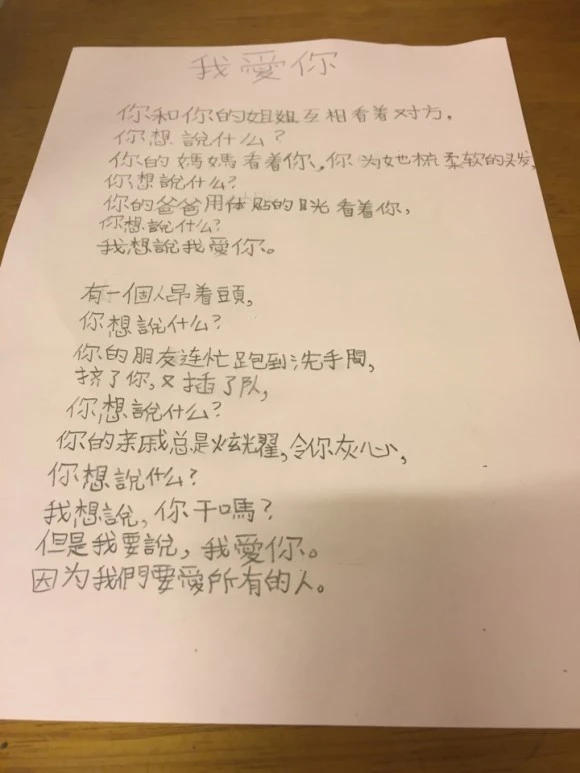 我愛你
你和你的姐姐互相看着对方，
你想說什么？
你的媽媽看着你，你为她梳柔软的头发，
你想說什么？
你的爸爸用体贴的目光看着你，
你想說什么？
我想說我愛你。
有一個人昂着頭，
你想說什么？
你的朋友连忙跑到洗手間，
挤了你，又插了队，
你想說什么？
你的亲戚总是炫耀，令你灰心，
你想說什么？
我想說，你干嗎？
但是我要說，我愛你。
因为我們要愛所有的人。